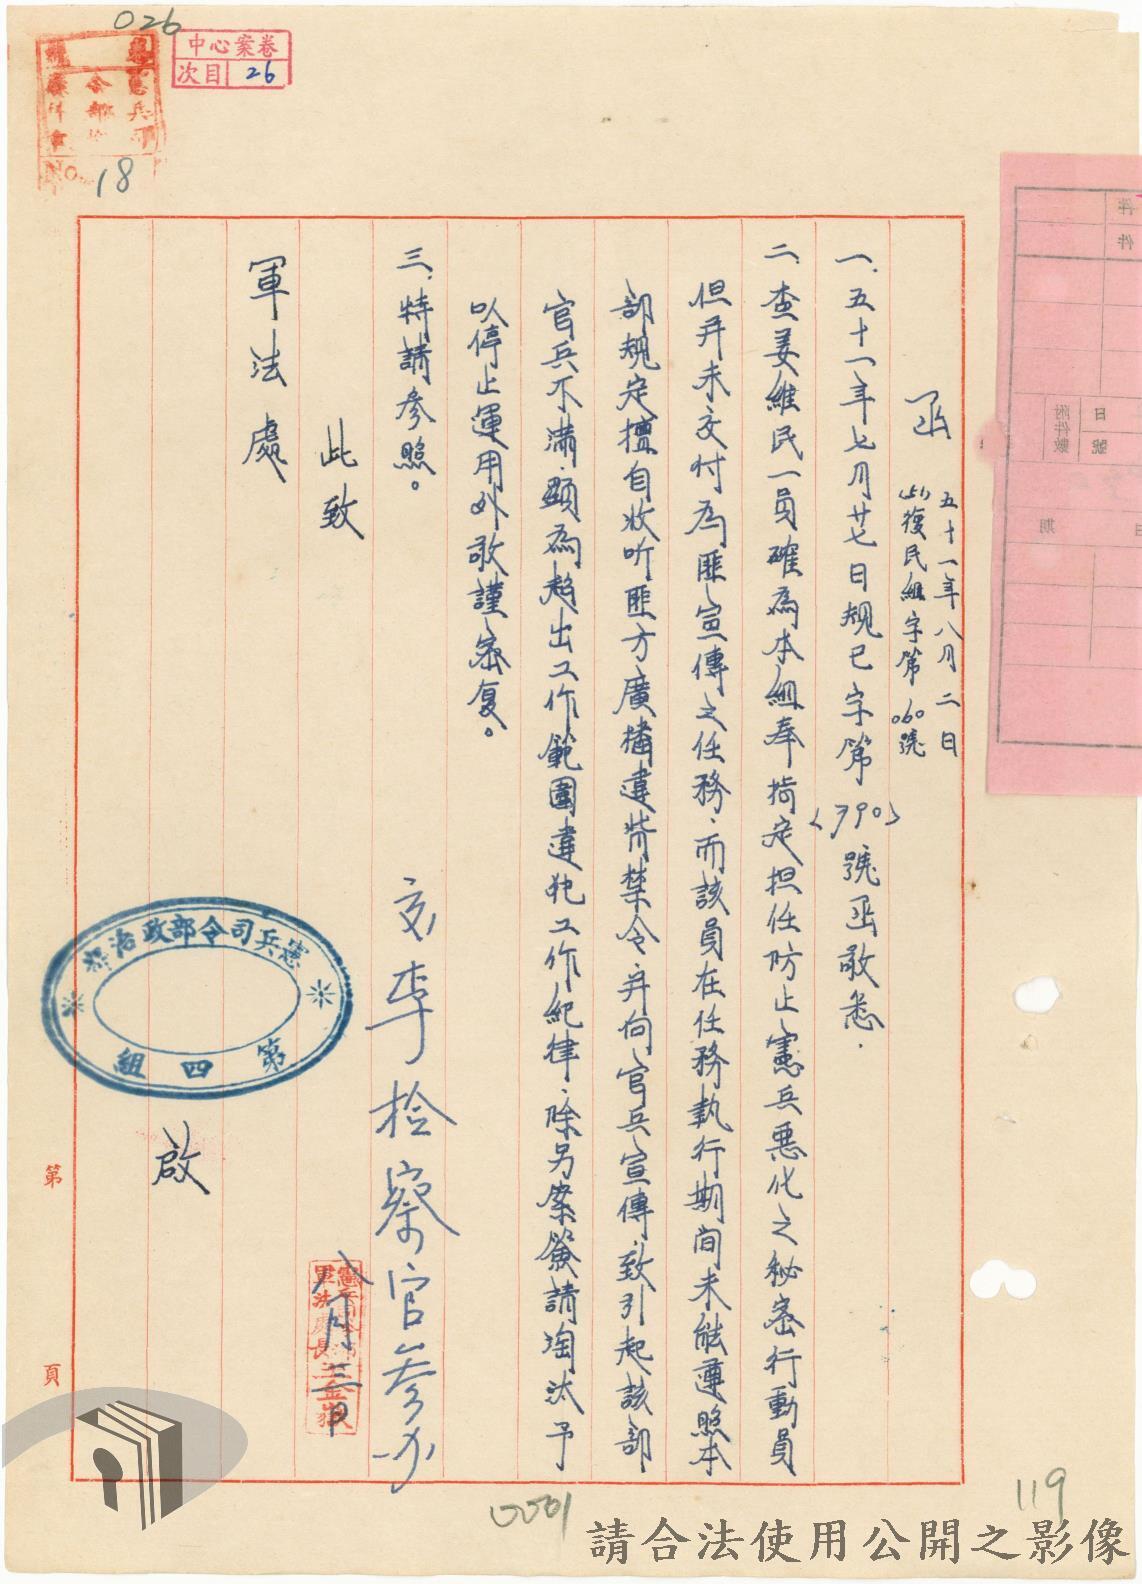 026
中心案卷
次目 26
No. 18
函
五十一年八月二日
(51)復民組字第060號
一、五十一年七月廿七日規巳字第(790)號函敬悉.
二、查姜維民一員確為本組奉指定担任防止憲兵惡化之秘密行動員
但并未交付為匪宣傳之任務.而該員在任務執行期间未能遵照本
部規定擅自收听匪方廣播違背禁令.并向官兵宣傳.致引起該部
官兵不满.顯為越出工作範圍違犯工作紀律.除另案簽請淘汰予
以停止運用外敬謹密复。
三、特請参照。
此致
軍法處
憲兵司令部政治部
第四組
啟
交李檢察官参办
八月三日
第
頁
件
件
日
號
附件數
日
期
0001
119
請合法使用公開之影像